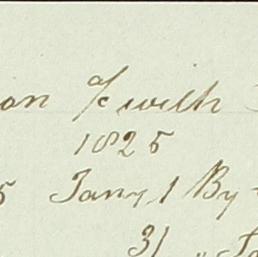 on a/c with
1825
5 Jany 1 By
31 "